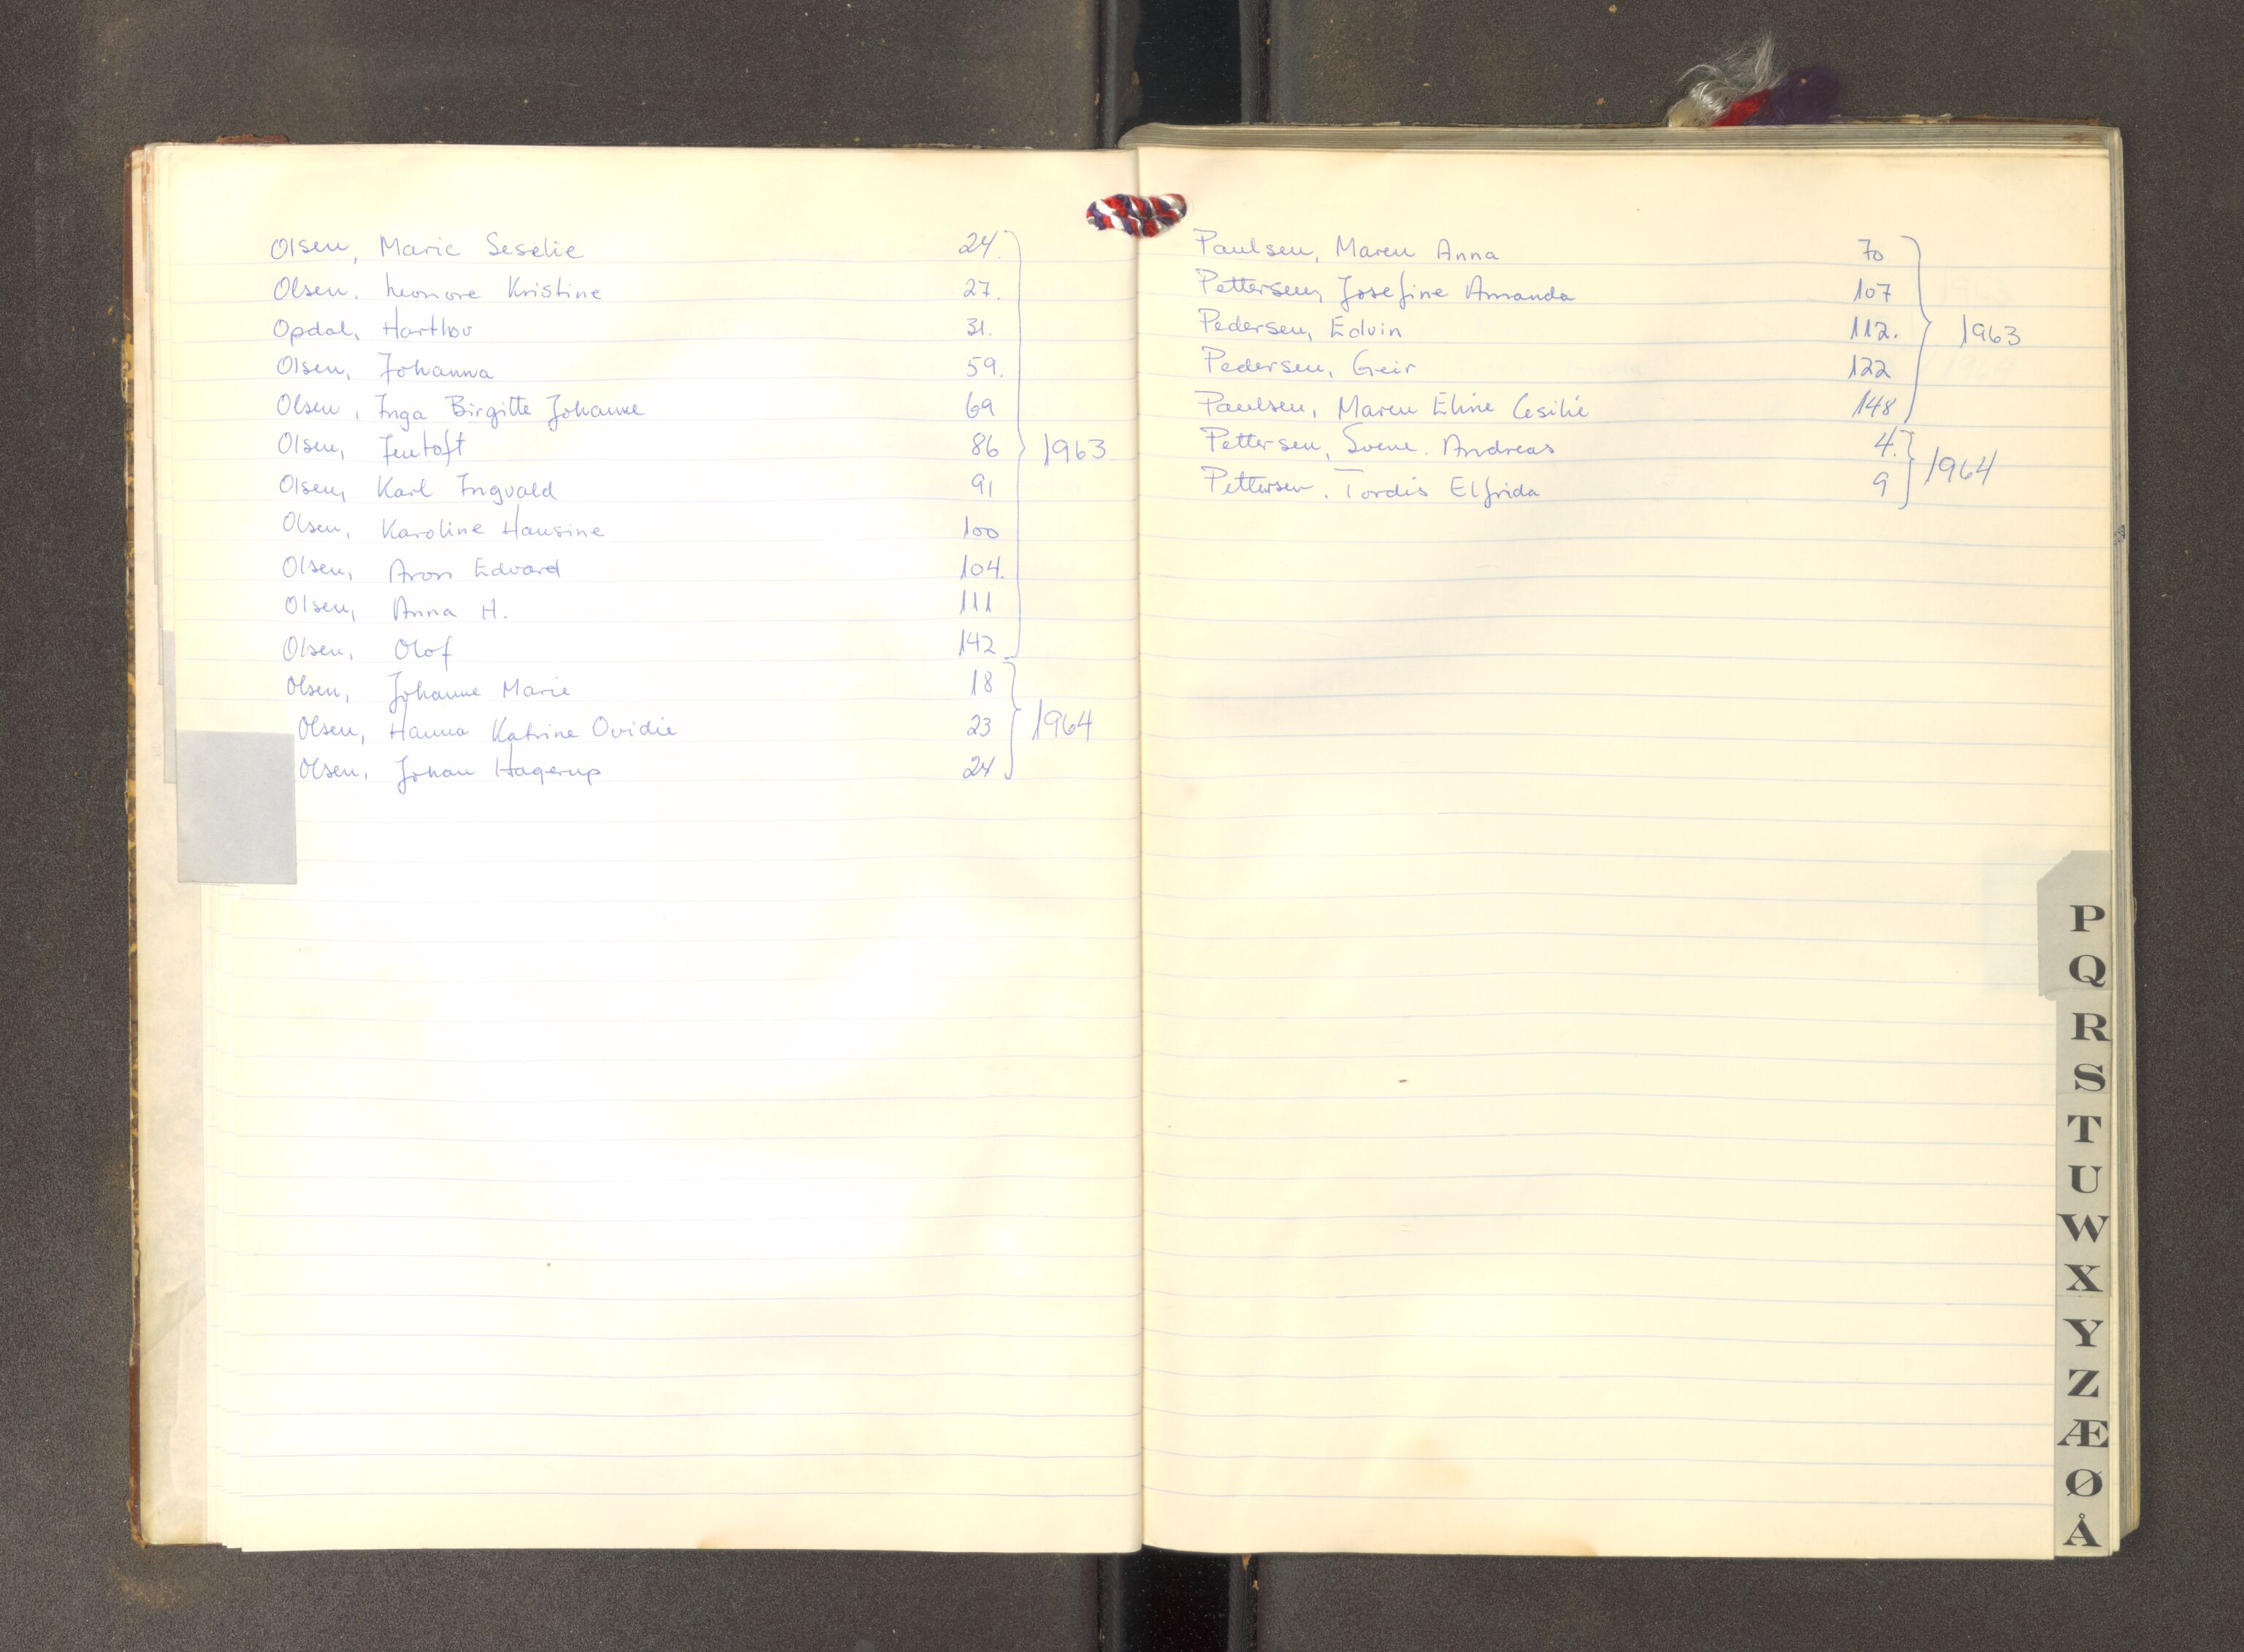 Olsen, Marie Seselie 24.
Olsen, Leonore Kristine 27.
Opdal, Harthov 31.
Olsen, Johanna 59.
Olsen, Inga Birgitte Johanne 69
Olsen, Jentoft 86
Olsen, Karl Ingvald 91
Olsen, Karoline Hansine 100
Olsen, Aron Edvard 104.
Olsen, Anna H. 111
Olsen, Olof 142
1963
Olsen, Johanne Marie 18
Olsen, Hanna Katrine Ovidie 23
Olsen, Johan Hagerup 24
1964
Paulsen, Maren Anna 70
Pettersen, Josefine Amanda 107
Pedersen, Edvin 112.
Pedersen, Geir 122
Paulsen, Maren Eline Cesilie 148
1963
Pettersen, Svene. Andreas 4.
Pettersen, Tordis Elfrida 9
1964
P
Q
R
S
T
U
W
X
Y
Z
Æ
Ø
Å